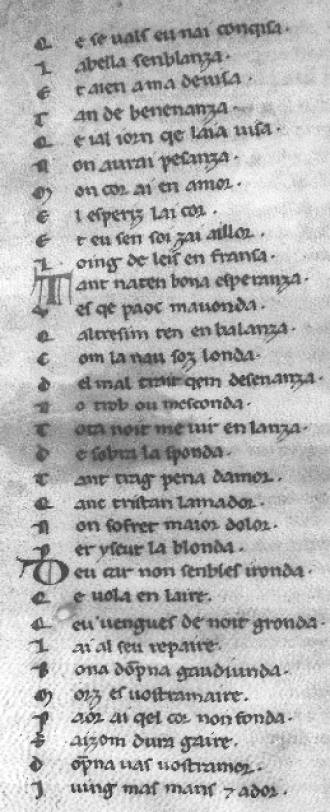 Q e se uals eu nai conqisa·
L abella senblanza·
E t aien ama deuisa·
T an de benenanza·
Q e ial iorn qe laia uisa·
N on aurai pesanza·
M on cor ai en amor·
E l esperiz lai cor·
E t eu sen soi zai aillor·
L oing de leis en fransa·
T ant naten bona esperanza·
V es qe paoc mauonda·
Q altresim ten en balanza·
C om la nau soz londa·
D el mal trait qem desenanza·
N o trob ou mesconda·
T ota noit me uir en lanza·
D e sobra la sponda·
T ant trag pena damor·
Q anc tristan lamador·
N on sofret maior dolor·
P er yseut la blonda·
D eu car non senbles ironda·
Q e uola en laire·
Q eu uengues de noit gronda·
L ai al seu repaire·
B ona dōpna gaudiunda·
M orz es uostramaire·
P aor ai qel cor non fonda·
S aizom dura gaire·
D o̅pna uas uostramor·
I uing mas mans ⁊ ador·